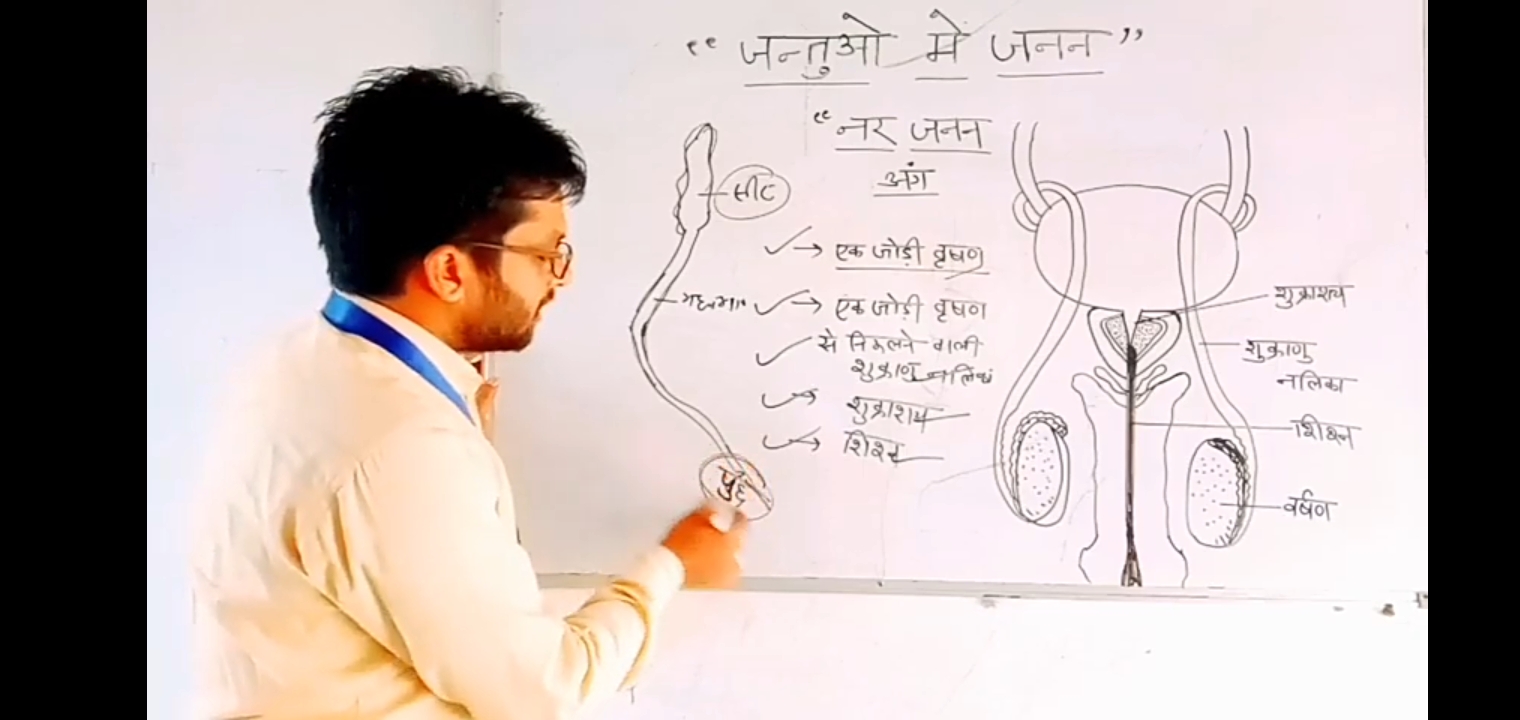 “ जन्तुओ में जनन ”
“ नर जनन
अंग
सीर
→ एक जोड़ी वृषण
→ एक जोड़ी वृषण
से निकलने वाली
शुक्राणु नलिकां
→ शुक्राशय
→ शिश्न
शुक्राशय
शुक्राणु
नलिका
शिश्न
वर्षण